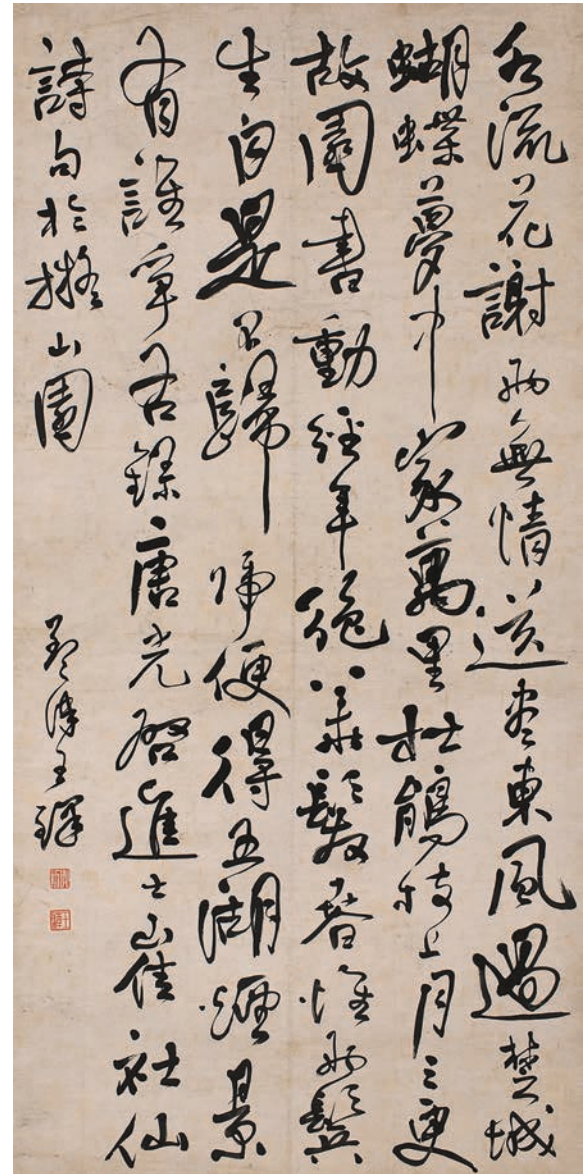 水流花謝兩無情送盡東風過楚城
蝴蝶夢中家萬里杜鵑枝上月三更
故園書動經年絕華髮春惟兩鬢
生自是不歸歸便得五湖煙景
有誰爭右錄唐光啓進士崔社仙
詩句於擬山園 孟津王鐸